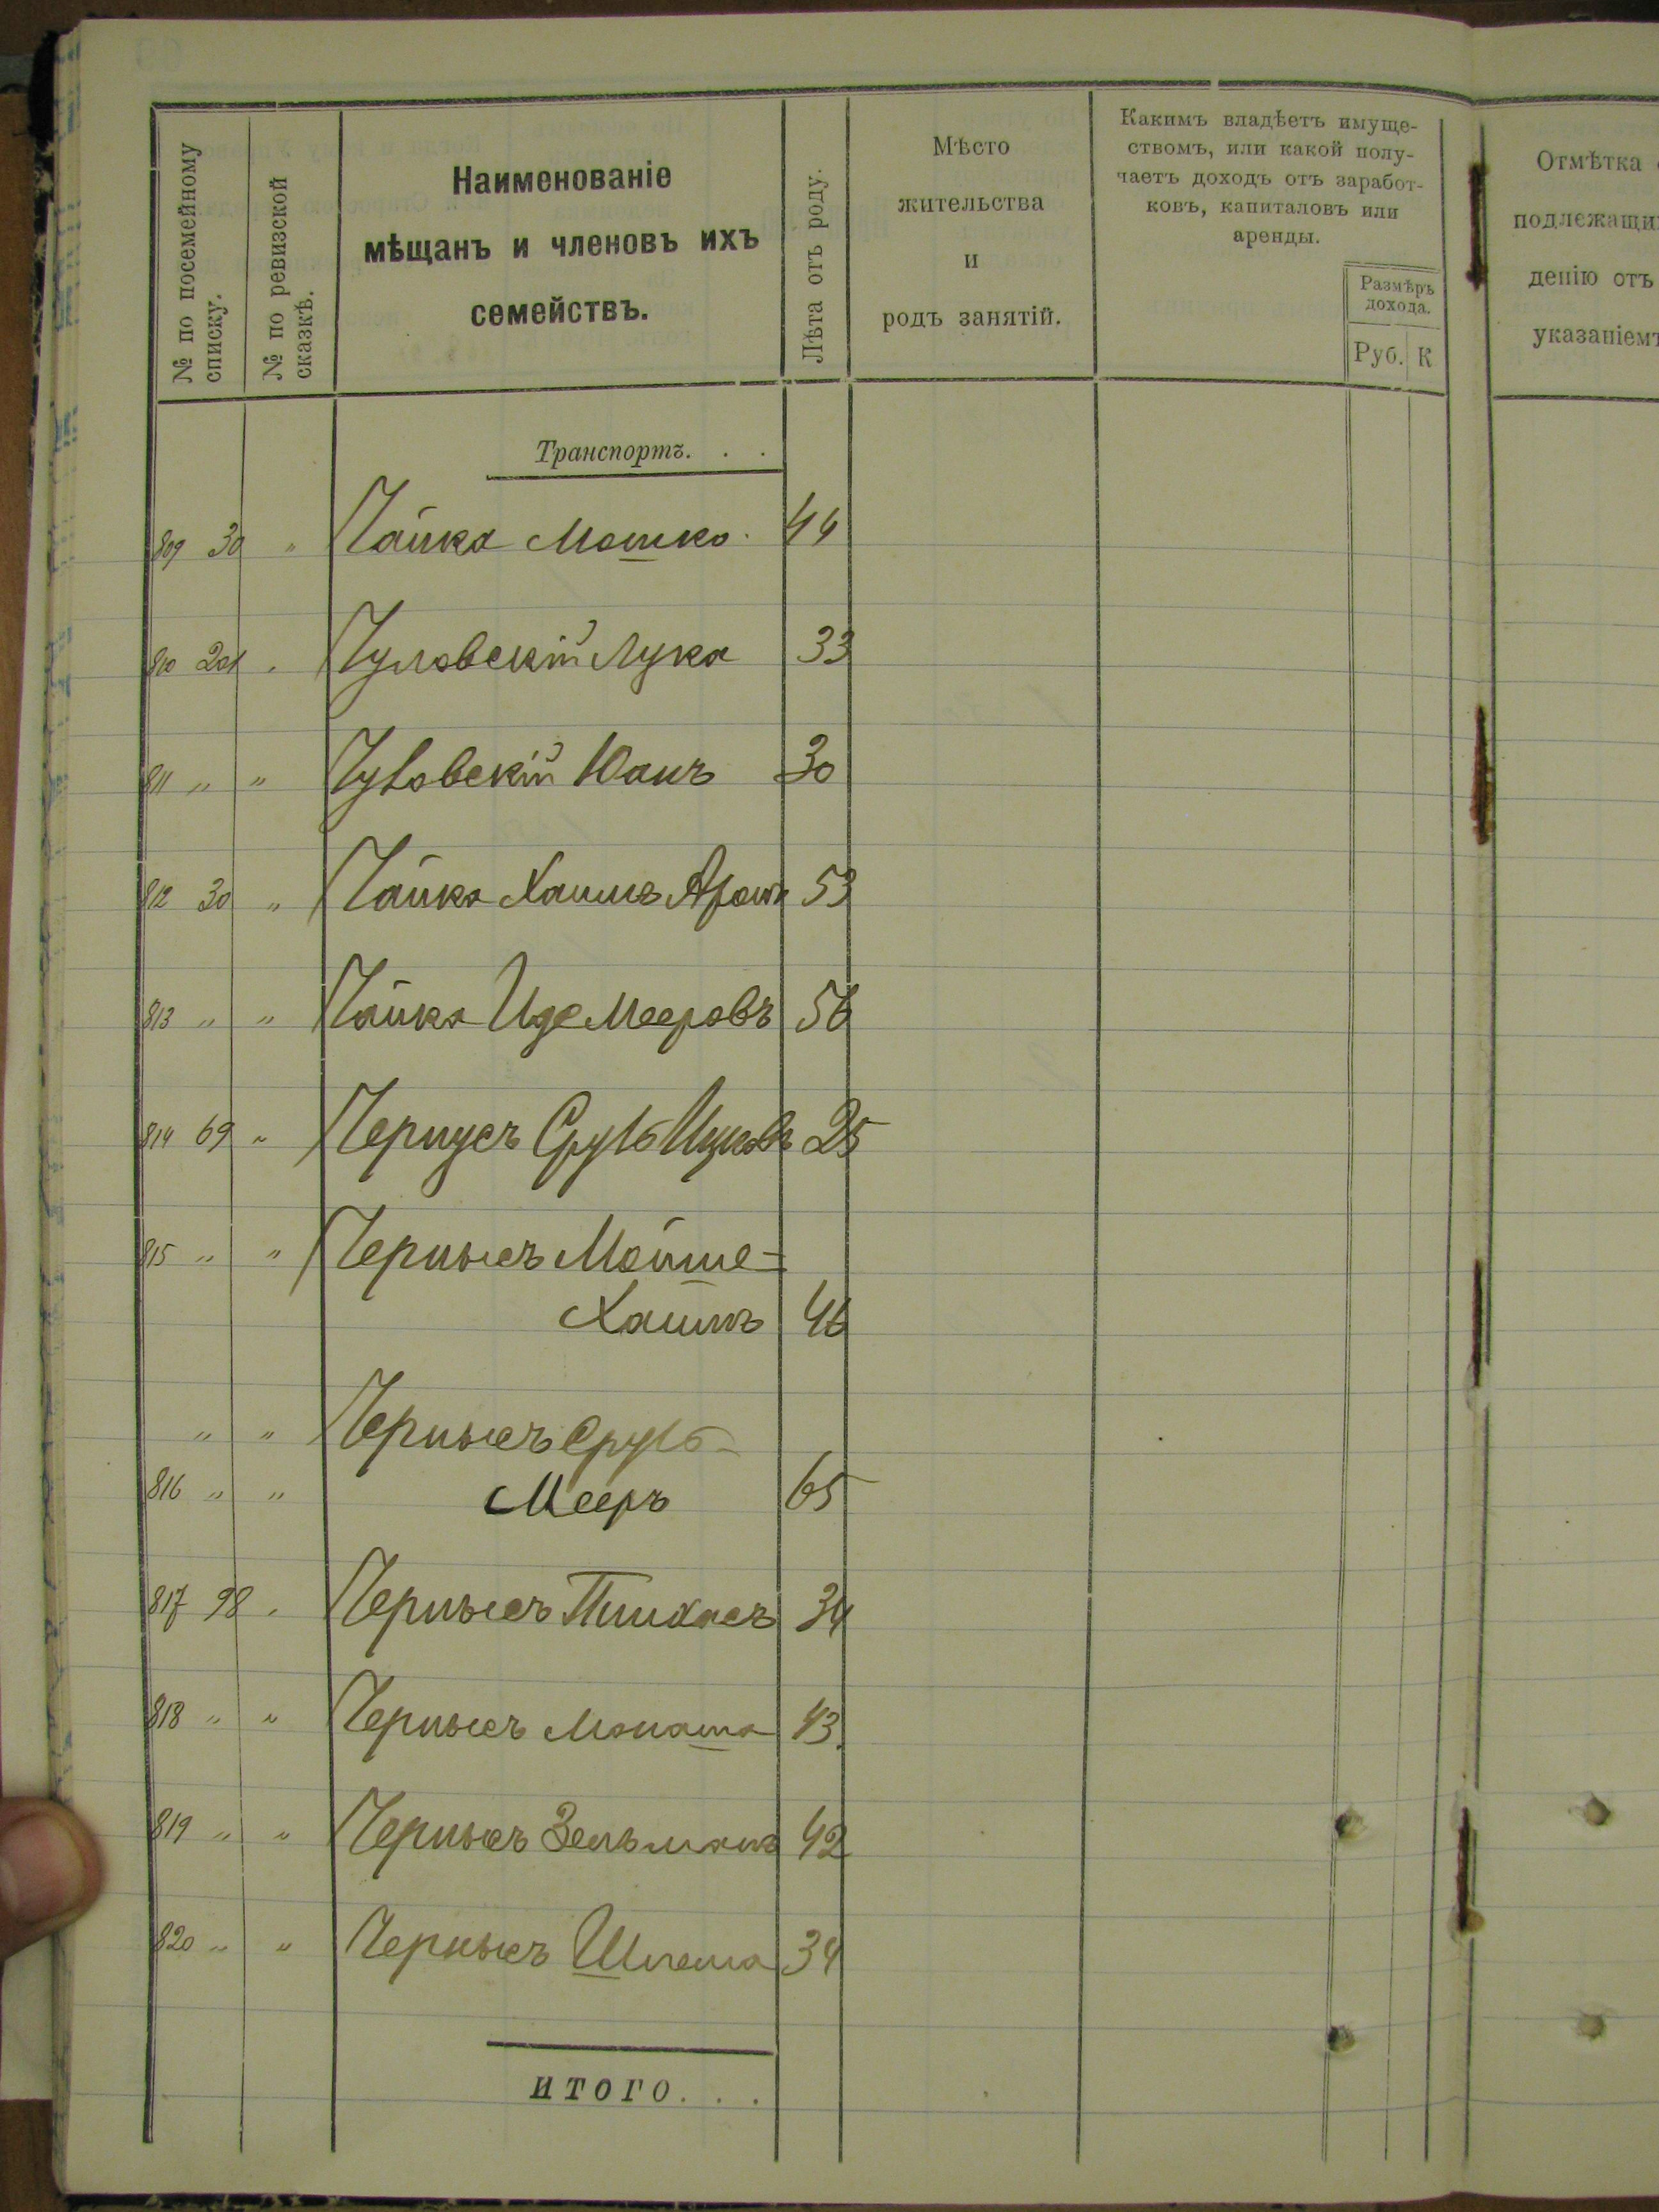 № по посемейному списку.
№ по ревизской сказкѣ.
Наименованіе
мѣщанъ и членовъ ихъ
семействъ.
Лѣта отъ роду.
Мѣсто
жительства
и
родъ занятій.
Какимъ владѣетъ имуще-
ствомъ, или какой полу-
чаетъ доходъ отъ заработ-
ковъ, капиталовъ или
аренды.
Размѣръ
дохода.
Руб. К
Отмѣтка
подлежащи
денію отъ
указаніем
Транспортъ. . .
809 30 " Чайка Мошко. 44
810 201 " Чуловскій Лука 33
811 " " Чуловскій Юанъ 30
812 30 " Чайка Хаимъ Арон 53
813 " " Чайка Иде Мееровъ 56
814 69 " Чернусъ Сруль Ицковъ 25
815 " " Чернысъ Мойше-
Хаимъ 46
" " Чернысъ Сруль-
816 " " Мееръ 65
817 98 " Чернысъ Пинхасъ 34
818 " " Чернысъ Монаша 43.
819 " " Чернысъ Зельманъ 42
820 " " Чернысъ Шлема 34
ИТОГО. . .